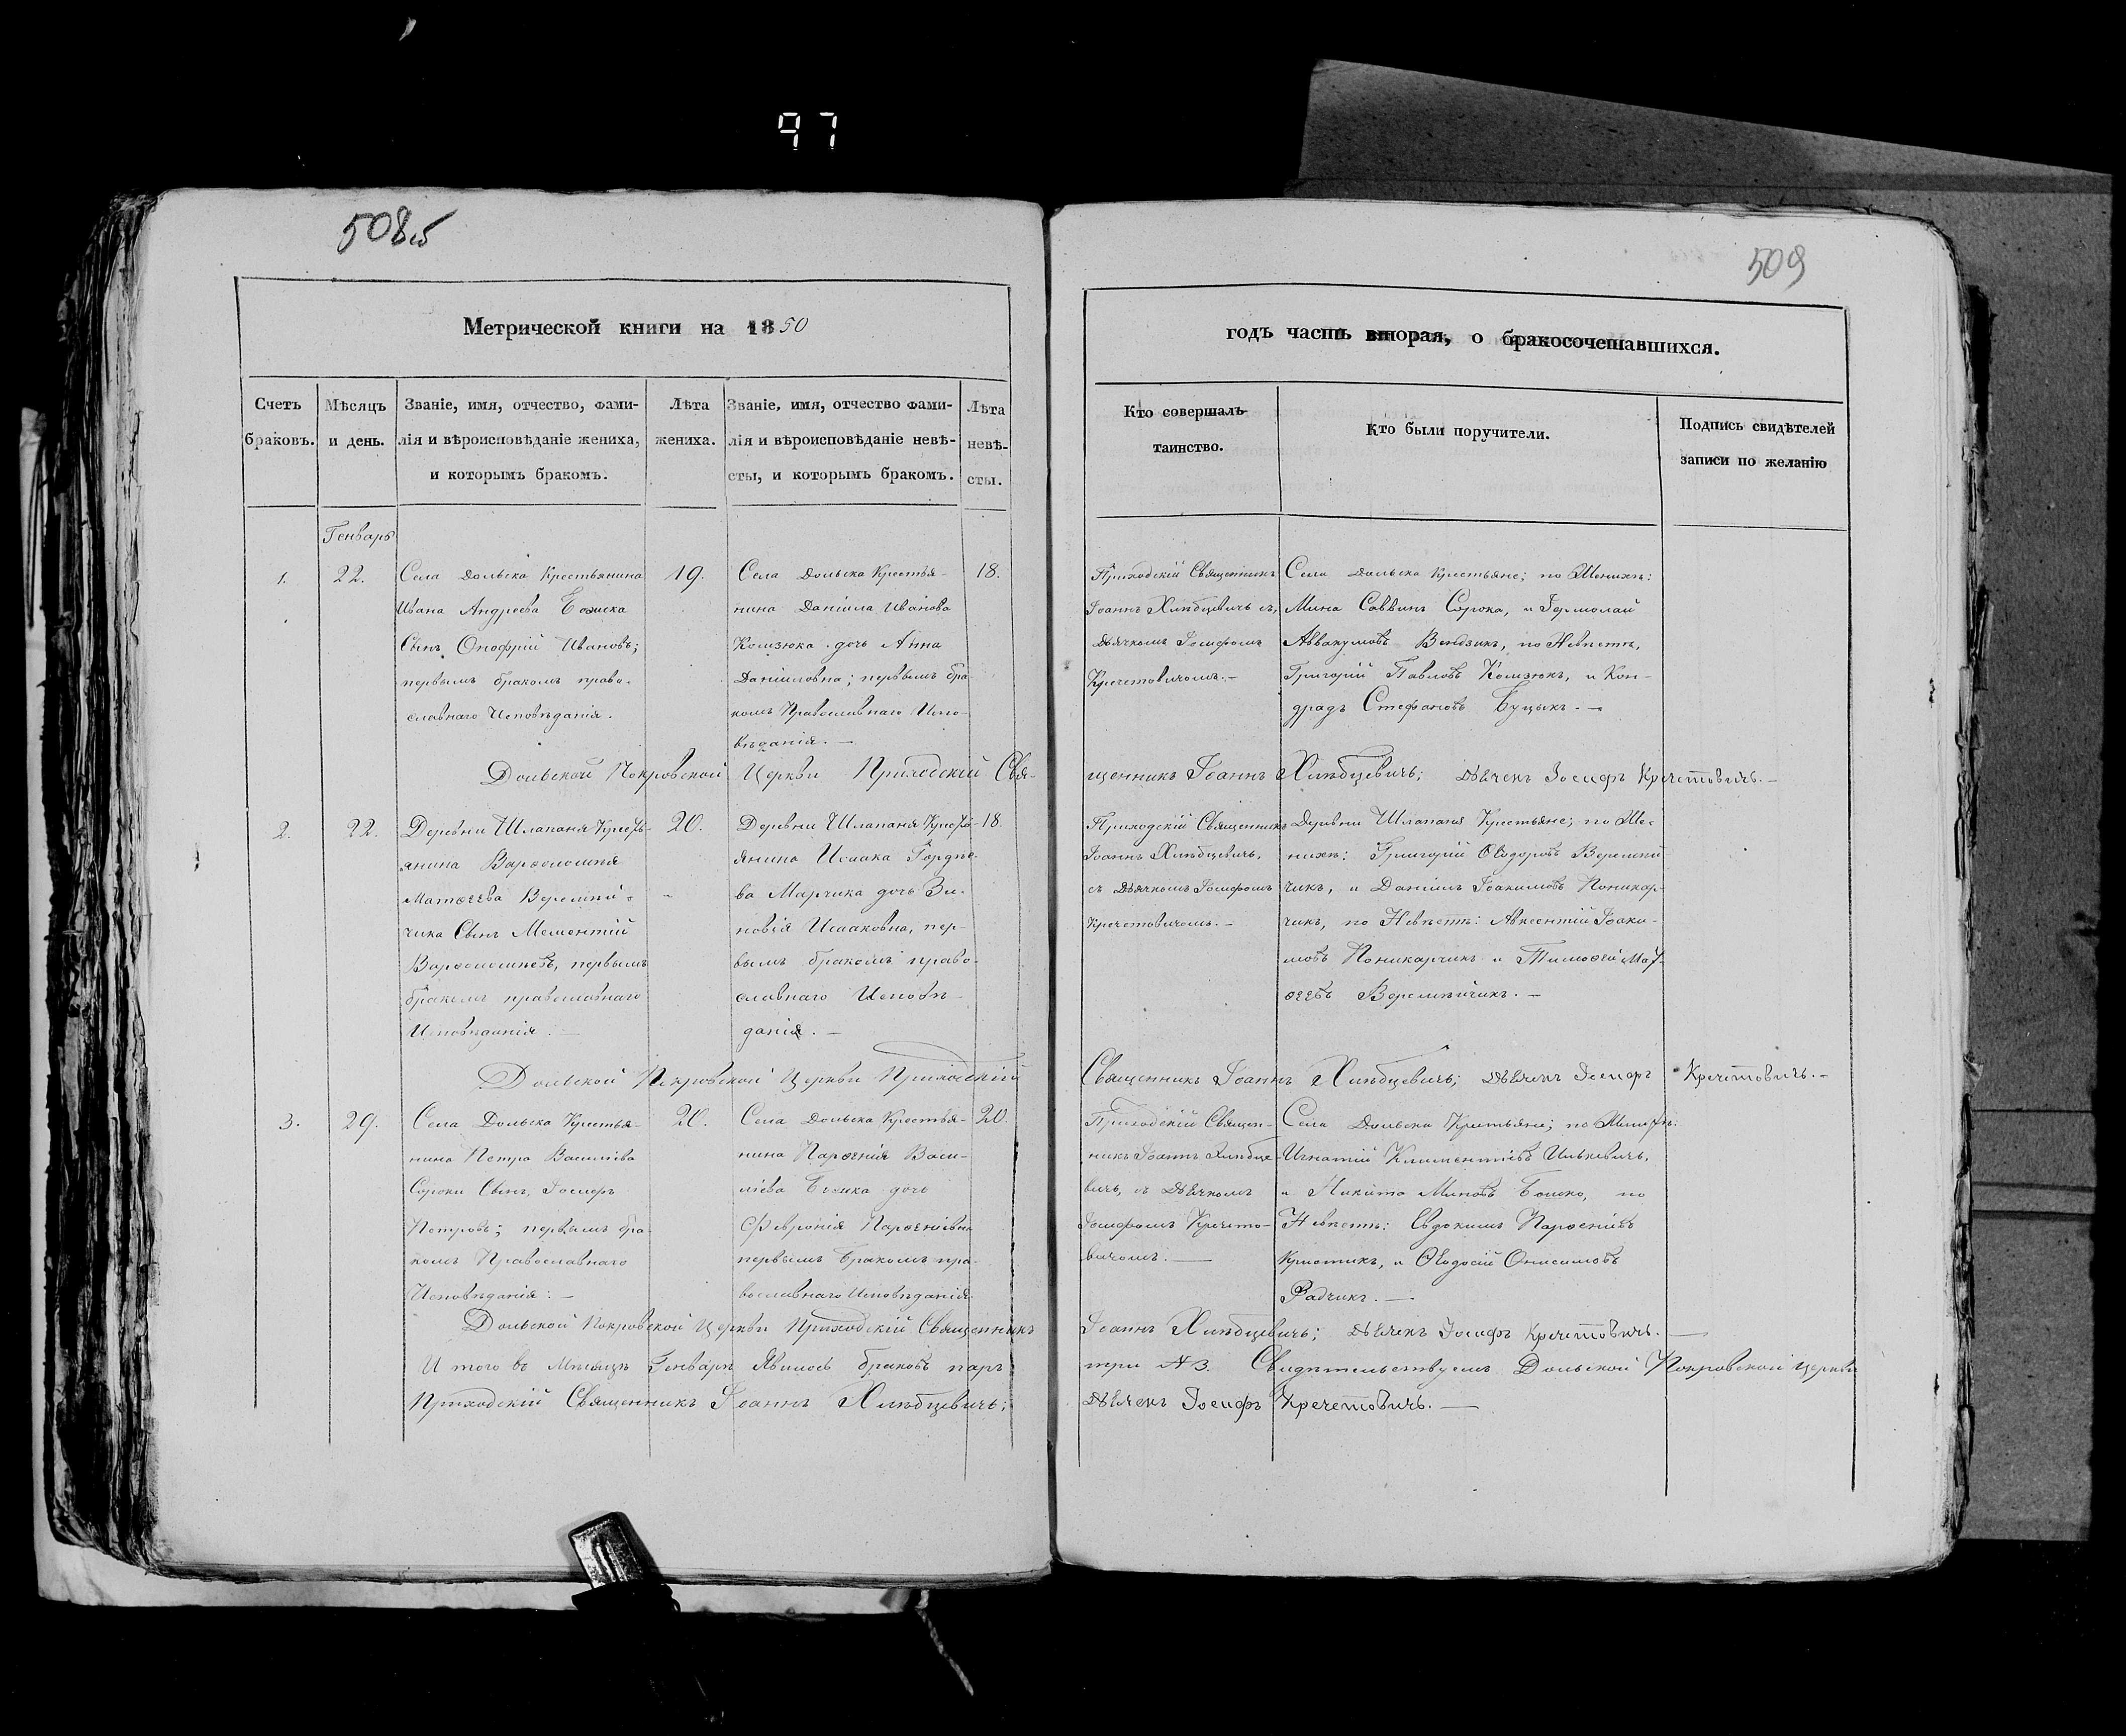 97
508об
509
Метрической книги на 1850
годъ часть вторая, о бракосочетавшихся.
Счетъ
браковъ.
Мѣсяцъ
и день.
Званіе, имя, отчество, фами-
лія и вѣроисповѣданіе жениха,
и которымъ бракомъ.
Лѣта
жениха.
Званіе, имя, отчество фами-
лія и вѣроисповѣданіе невѣ-
сты, и которымъ бракомъ.
Лѣта
невѣ-
сты.
Кто совершалъ
таинство.
Кто были поручители.
Подпись свидѣтелей
записи по желанію
Генварь
1.
22.
Села Дольска Крестьянина
Ивана Андреева
Сынъ Онофрій Ивановъ;
первымъ бракомъ право-
славнаго Исповѣданія.
19.
Села Дольска Крестья-
нина Даніила Иванова
Комзюка дочь Анна
Даніиловна; первымъ бра-
комъ Православнаго Испо-
вѣданія. —
18.
Приходскій Священникъ
Іоаннъ Хлѣбцевичь съ,
Дьячкомъ Іосифомъ
Кречетовичомъ. —
Села Дольска Крестьяне; по Женихѣ:
Мина Саввинъ Сорока, и Іермолай
Аввакумовъ по Невѣстѣ,
Григорій Павловъ Комзюкъ, и Кон-
дратъ Стефановъ Буцыкъ. —
Дольской Покровской Церкви Приходскій Свя-
щенникъ Іоаннъ Хлѣбцевичь; Дьячекъ Іосифъ Кречетовичь. —
2.
22.
Деревни Шлапаня Кресть-
янина Варѳоломѣя
Матѳеева Веремѣй-
чика Сынъ Мементій
Варѳоломѣевъ, первымъ
бракомъ православнаго
Исповѣданія. —
20.
Деревни Шлапаня Кресть-
янина Исаака Гордѣе-
ва Марчика дочь Зи-
новія Исааковна, пер-
вымъ бракомъ право-
славнаго Исповѣ-
данія. —
18.
Приходскій Священникъ
Іоаннъ Хлѣбцевичь,
съ Дьячкомъ Іосифомъ
Кречетовичомъ. —
Деревни Шлапаня Крестьяне; по Же-
нихѣ: Григорій Ѳеодоровъ Веремѣй-
чикъ, и Даніилъ Іоакимовъ Поникар-
чикъ, по Невѣстѣ: Авксентій Іоаки-
мовъ Поникарчикъ и Тимоѳей Мат-
ѳеевъ Веремѣйчикъ. —
Дольской Покровской Церкви Приходскій
Священникъ Іоаннъ Хлѣбцевичь; Дьячекъ Іосифъ Кречетовичь. —
3.
29.
Села Дольска Крестья-
нина Петра Василіева
Сороки Сынъ, Іосифъ
Петровъ; первымъ бра-
комъ Православнаго
Исповѣданія: —
20.
Села Дольска Крестья-
нина Парѳенія Васи-
ліева дочь
Февронія Парѳеніевна
первымъ бракомъ пра-
вославнаго Исповѣданія
20.
Приходскій Священ-
никъ Іоаннъ Хлѣбце-
вичь, съ Дьячкомъ
Іосифомъ Кречето-
вичомъ. —
Села Дольска Крестьяне; по Женихѣ:
Игнатій Климентіевъ Илькевичь,
и Никита Миновъ по
Невѣстѣ: Евдокимъ Парѳеніевъ
и Ѳеодосій Онисимовъ
Радчикъ. —
Дольской Покровской Церкви Приходскій Священникъ
Іоаннъ Хлѣбцевичь; Дьячекъ Іосифъ Кречетовичь. —
И того въ Мѣсяцѣ Генварѣ Явилось браковъ паръ
три №3. Свидѣтельствуемъ Дольской Покровской Церкви
Приходскій Священникъ Іоаннъ Хлѣбцевичь;
Дьячекъ Іосифъ Кречетовичь. —